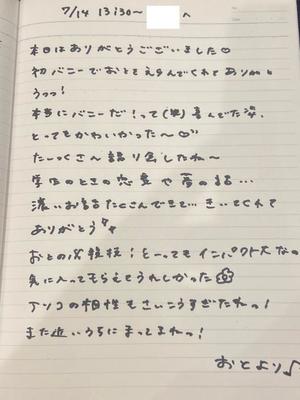 7/14 13:30〜 へ
本日はありがとうございました♡
初バニーでおとをえらんでくれてありがと
うっっ!
本当にバニーだ!って(笑)喜んでた姿、
とってもかわいかった〜♡
たーっくさん語り合したね〜
学生のときの恋愛や夢の話...
濃いお話たくさんできて...きいてくれて
ありがとう
おとの必殺技!とーってもインパクト大なの
気に入ってもらえてうれしかった
アソコの相性もさいこうすぎたねっ!
また近いうちにまってるねっ!
おとより♪